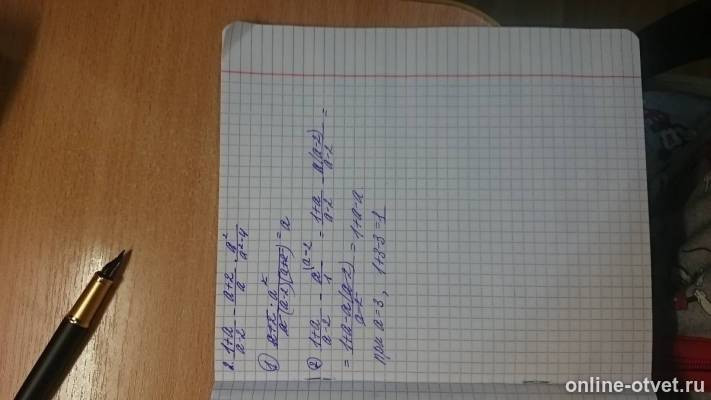 2. (1+a)/(a-2) - (a+2)/a · a²/(a²-4)
1) (a+2)·a²/(a·(a-2)(a+2)) = a
2) (1+a)/(a-2) - a/1 \a-2 = (1+a)/(a-2) - a(a-2)/(a-2) =
= (1+a-a(a-2))/(a-2) = 1+a-a
при a=3, 1+3-3=1
online-otvet.ru